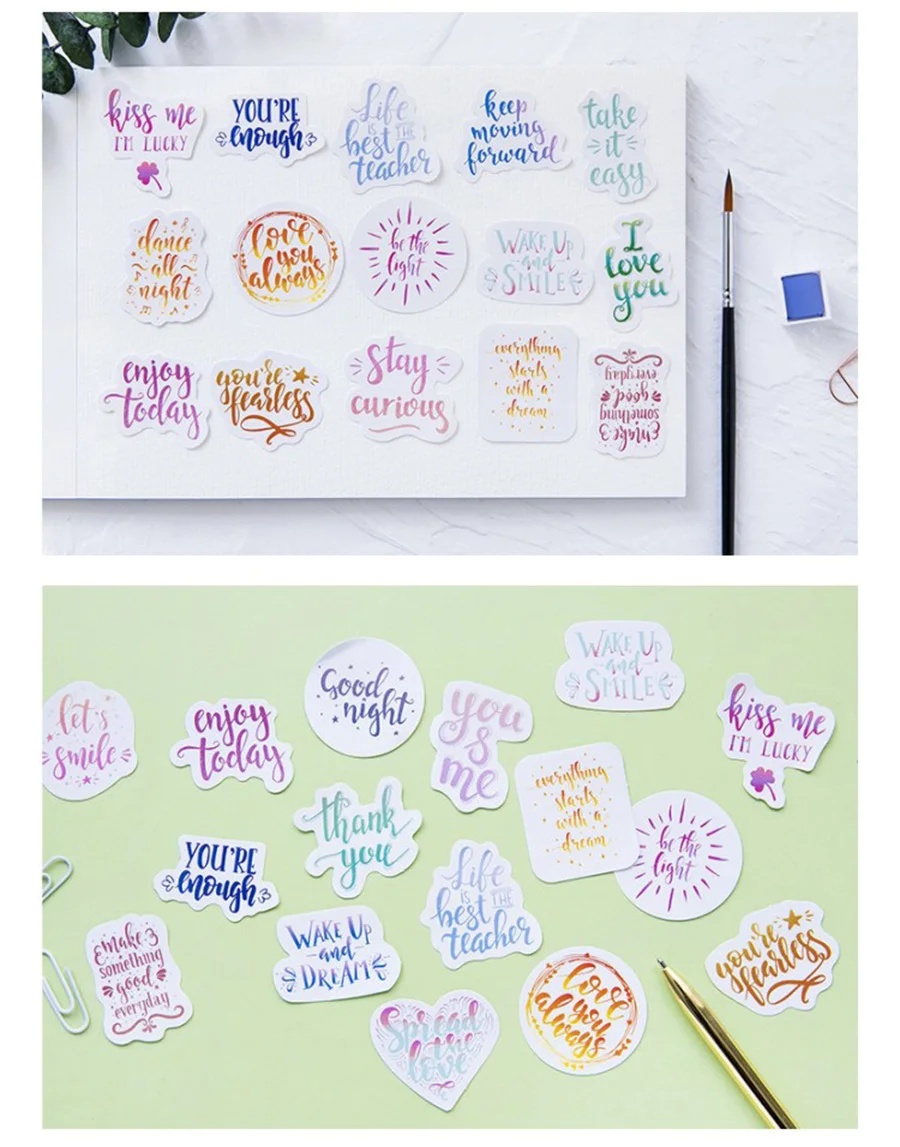 kiss me
I'M LUCKY
YOU'RE
enough
Life
IS THE
best
teacher
keep
moving
forward
take
it
easy
dance
all
night
love
you
always
be the
light
WAKE UP
and
SMILE
I
love
you
enjoy
today
you're
fearless
stay
curious
everything
starts
with a
dream
make
something
good
everyday
WAKE UP
and
SMILE
Good
night
let's
smile
enjoy
today
you
&
me
kiss me
I'M LUCKY
everything
starts
with a
dream
thank
you
be the
light
YOU'RE
enough
Life
IS THE
best
teacher
make
something
good
everyday
WAKE UP
and
DREAM
you're
fearless
love
you
always
Spread
the
love